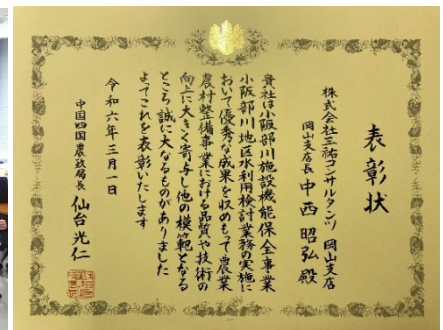 表彰状
株式会社三祐コンサルタンツ 岡山支店
岡山支店長 中西昭弘殿
貴社は小阪部川施設機能保全事業
小阪部川地区水利用検討業務の実施に
おいて優秀な成果を収めもって農業
農村整備事業における品質や技術の
向上に大きく寄与し他の模範となる
ところ誠に大なるものがありました
よってこれを表彰いたします
令和六年三月一日
中国四国農政局長 仙台光仁